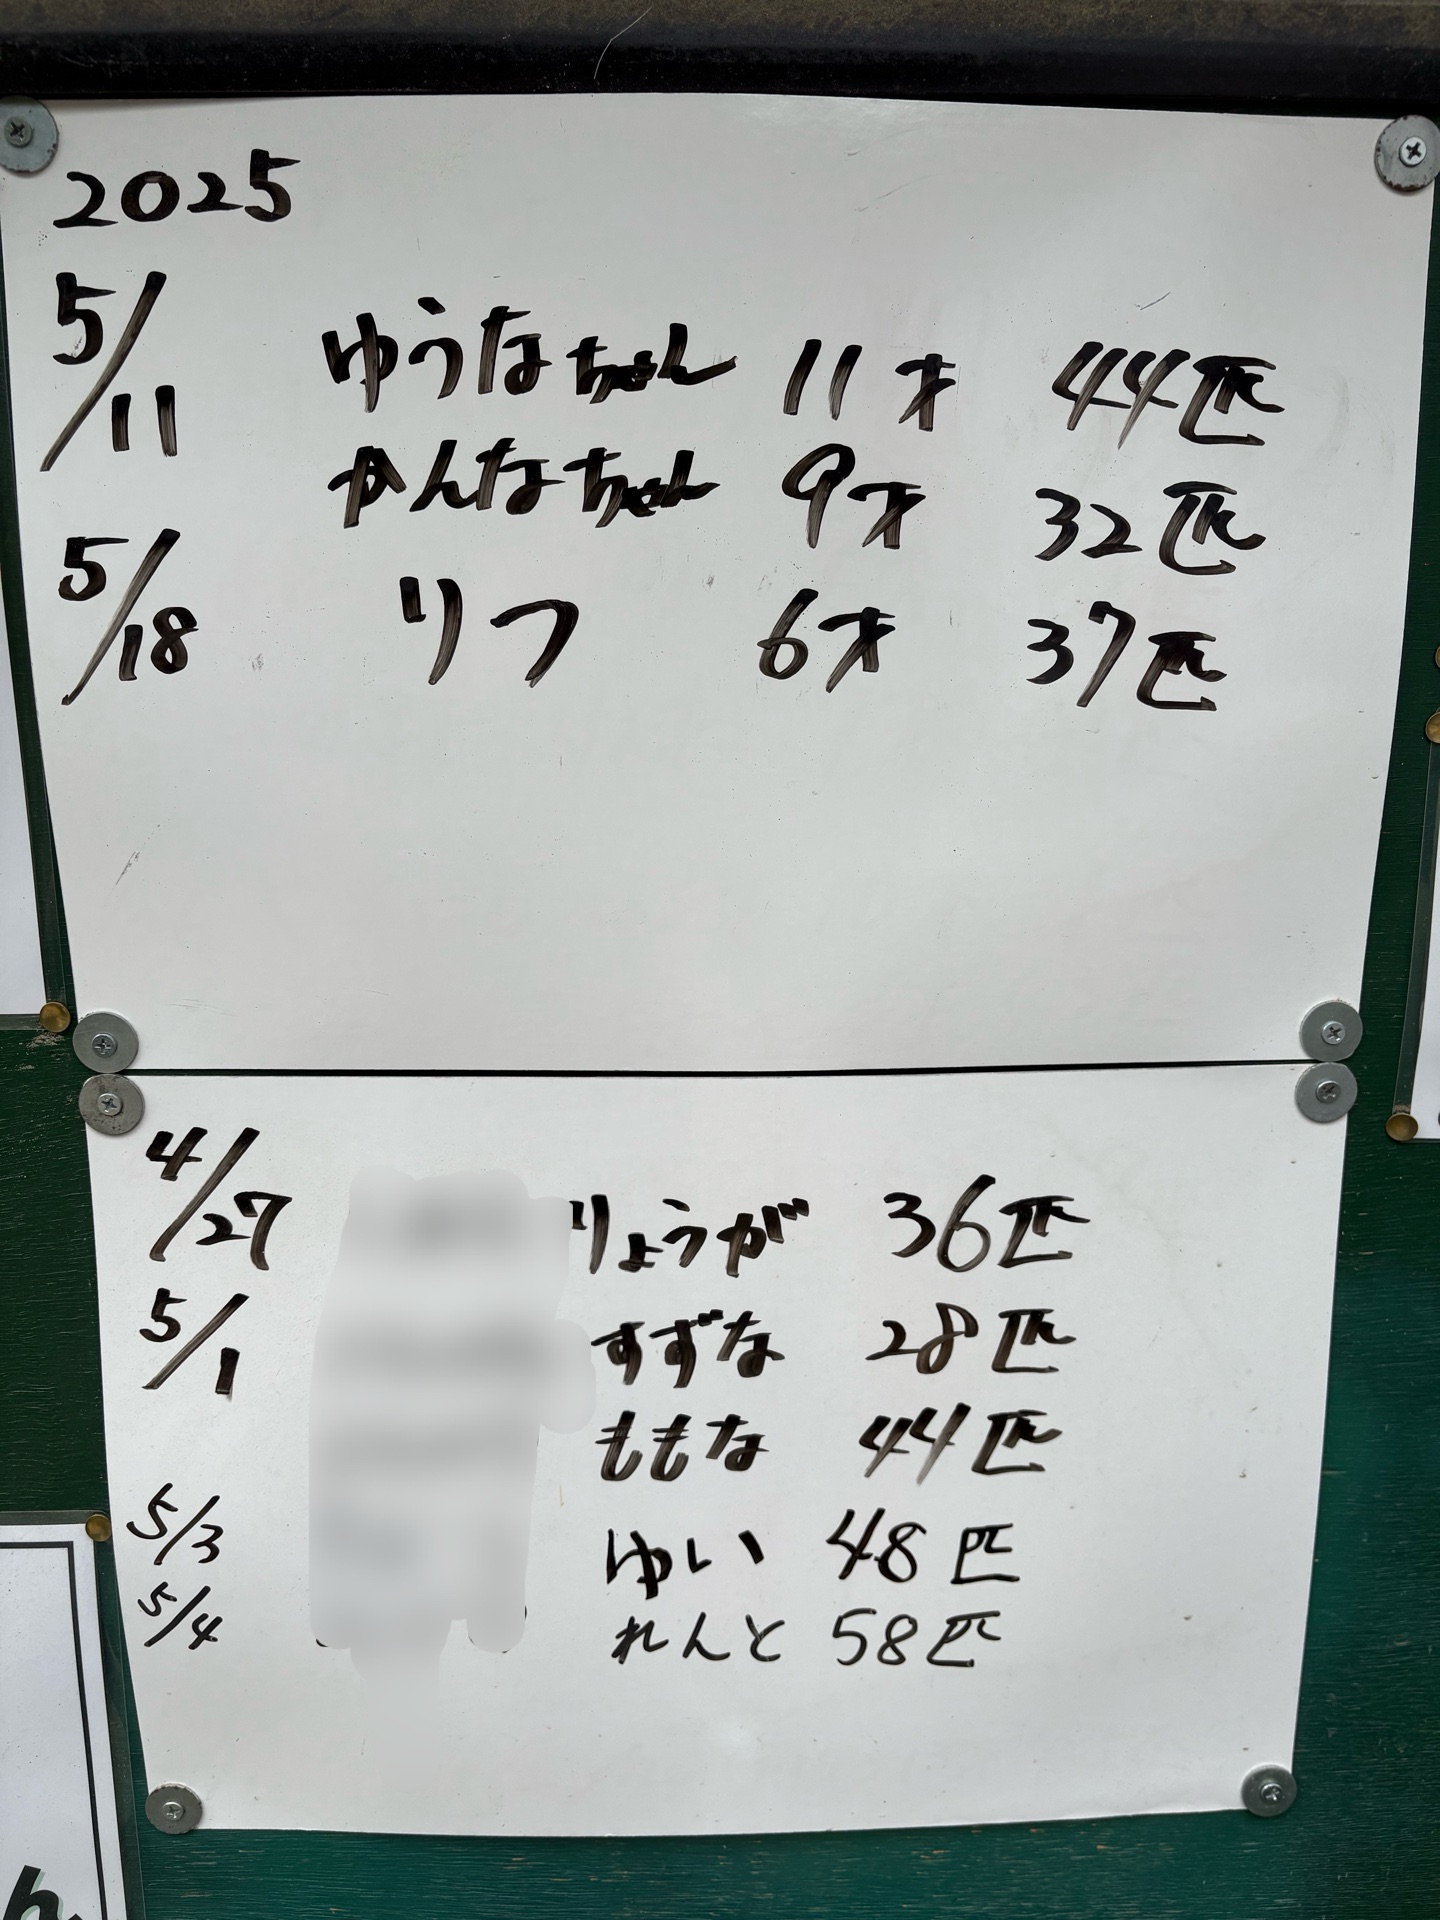 2025
5/11 ゆうなちゃん 11才 44匹
かんなちゃん 9才 32匹
5/18 リつ 6才 37匹
4/27 りょうが 36匹
5/1 すずな 28匹
ももな 44匹
5/3 ゆい 48匹
5/4 れんと 58匹